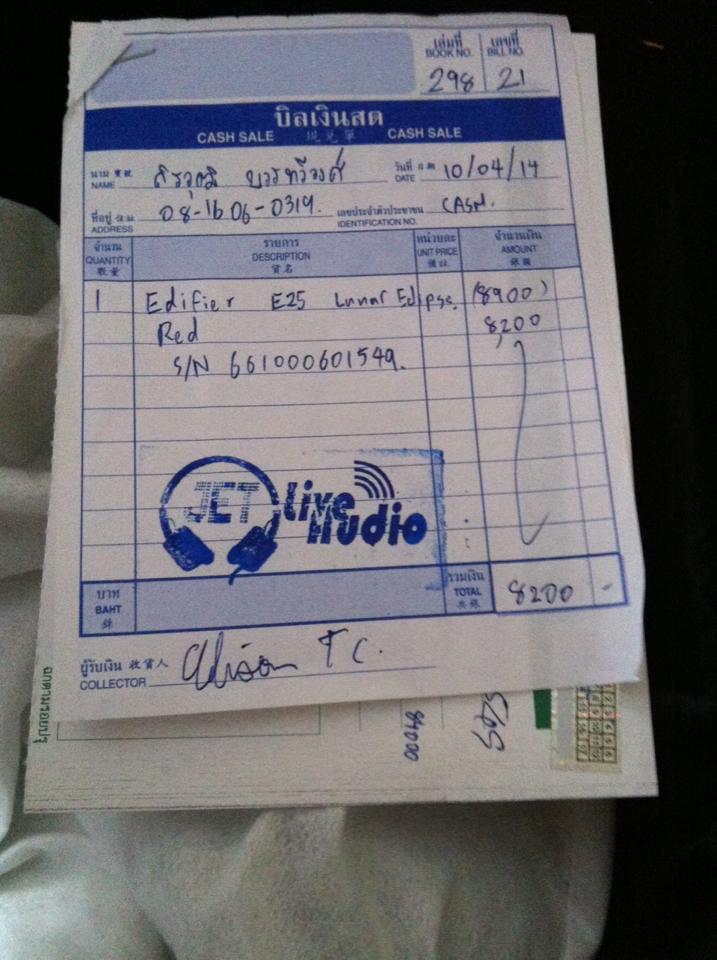 เล่มที่ เลขที่
BOOK NO. BILL NO.
298 21
บิลเงินสด
CASH SALE 現兌單 CASH SALE
นาม 寶號 วันที่
NAME DATE 10/04/14
ที่อยู่ 08-1606-0319. เลขประจำตัวประชาชน CASH.
ADDRESS IDENTIFICATION NO.
จำนวน รายการ หน่วยละ จำนวนเงิน
QUANTITY DESCRIPTION UNIT PRICE AMOUNT
數量 貨名 價銀 銀額
1 Edifier E25 Lunar Eclipse (8900)
Red 8,200
S/N 661000601549.
JET Live Audio
บาท รวมเงิน
BAHT TOTAL 8200 -
銖 共銀
ผู้รับเงิน 收貨人
COLLECTOR Adison T C.
84000